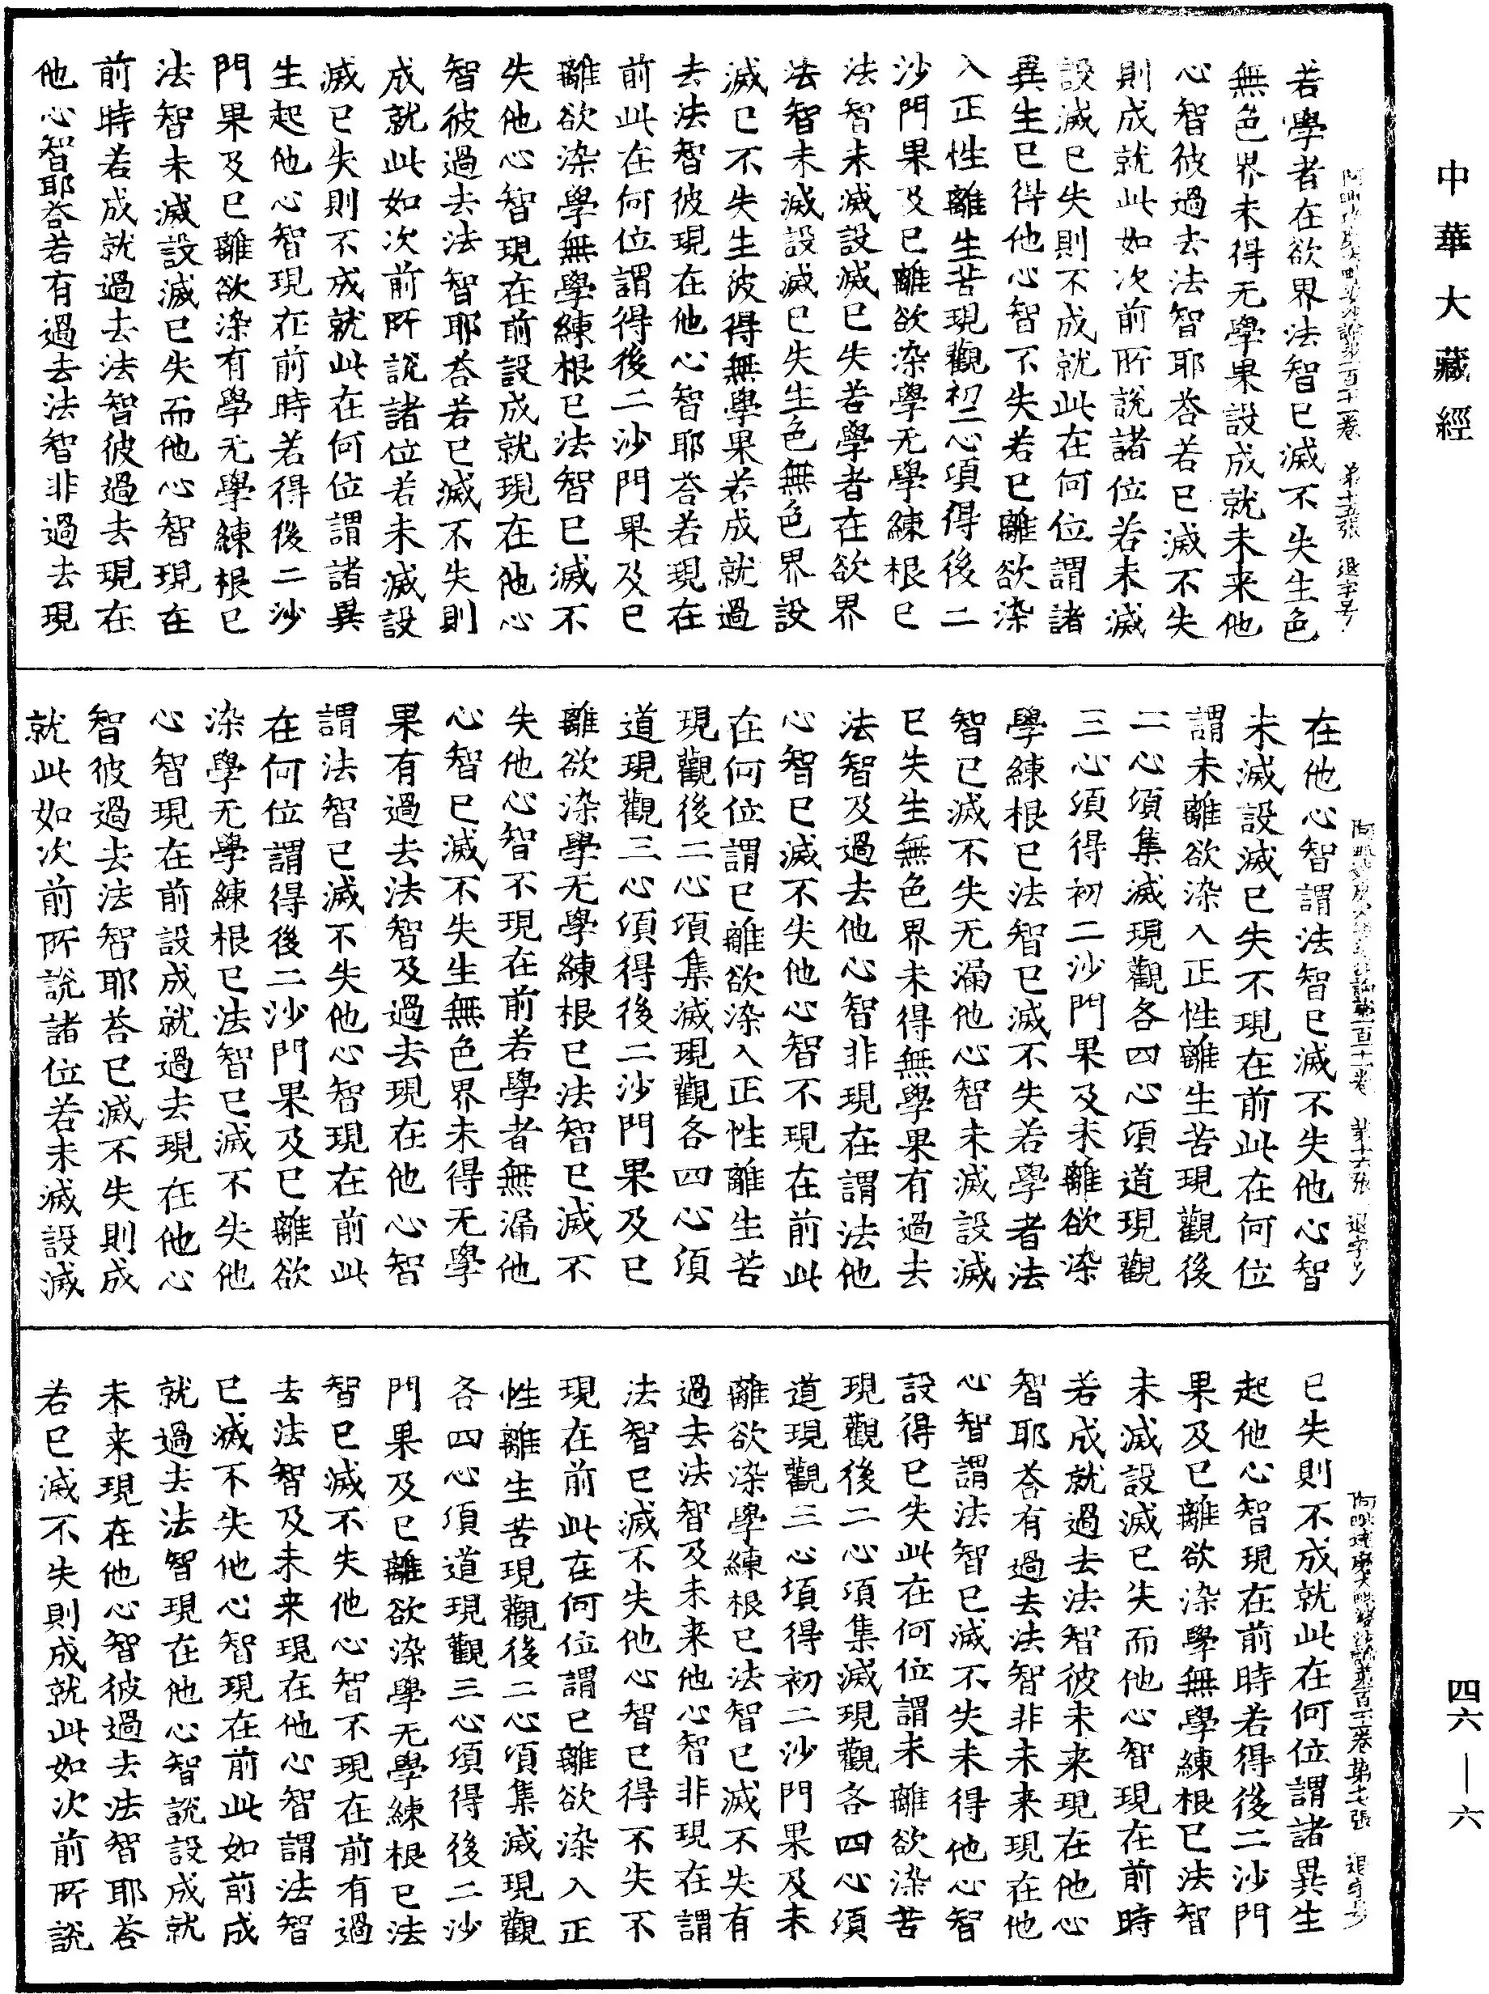 中華大藏經
若學者在欲界法智已滅不失生色
無色界未得无學果設成就未来他
心智彼過去法智耶荅若已滅不失
則成就此如次前所說諸位若未滅
設滅已失則不成就此在何位謂諸
異生已得他心智不失若已離欲染
入正性離生苦現觀初二心頃得後二
沙門果及已離欲染學无學練根已
法智未滅設滅已失若學者在欲界
法智未滅設滅已失生色無色界設
滅已不失生彼得無學果若成就過
去法智彼現在他心智耶荅若現在
前此在何位謂得後二沙門果及已
離欲染學無學練根已法智已滅不
失他心智現在前設成就現在他心
智彼過去法智耶荅若已滅不失則
成就此如次前所說諸位若未滅設
滅已失則不成就此在何位謂諸異
生起他心智現在前時若得後二沙
門果及已離欲染有學无學練根已
法智未滅設滅已失而他心智現在
前時若成就過去法智彼過去現在
他心智耶荅若有過去法智非過去現
在他心智謂法智已滅不失他心智
未滅設滅已失不現在前此在何位
謂未離欲染入正性離生苦現觀後
二心頃集滅現觀各四心頃道現觀
三心頃得初二沙門果及未離欲染
學練根已法智已滅不失若學者法
智已滅不失无漏他心智未滅設滅
已失生無色界未得無學果有過去
法智及過去他心智非現在謂法他
心智已滅不失他心智不現在前此
在何位謂已離欲染入正性離生苦
現觀後二心頃集滅現觀各四心頃
道現觀三心頃得後二沙門果及已
離欲染學无學練根已法智已滅不
失他心智不現在前若學者無漏他
心智已滅不失生無色界未得无學
果有過去法智及過去現在他心智
謂法智已滅不失他心智現在前此
在何位謂得後二沙門果及已離欲
染學无學練根已法智已滅不失他
心智現在前設成就過去現在他心
智彼過去法智耶荅已滅不失則成
就此如次前所說諸位若未滅設滅
已失則不成就此在何位謂諸異生
起他心智現在前時若得後二沙門
果及已離欲染學無學練根已法智
未滅設滅已失而他心智現在前時
若成就過去法智彼未来現在他心
智耶荅有過去法智非未来現在他
心智謂法智已滅不失未得他心智
設得已失此在何位謂未離欲染苦
現觀後二心頃集滅現觀各四心頃
道現觀三心頃得初二沙門果及未
離欲染學練根已法智已滅不失有
過去法智及未来他心智非現在謂
法智已滅不失他心智已得不失不
現在前此在何位謂已離欲染入正
性離生苦現觀後二心頃集滅現觀
各四心頃道現觀三心頃得後二沙
門果及已離欲染學无學練根已法
智已滅不失他心智不現在前有過
去法智及未来現在他心智謂法智
已滅不失他心智現在前此如前成
就過去法智現在他心智說設成就
未来現在他心智彼過去法智耶荅
若已滅不失則成就此如次前所說
四六—六